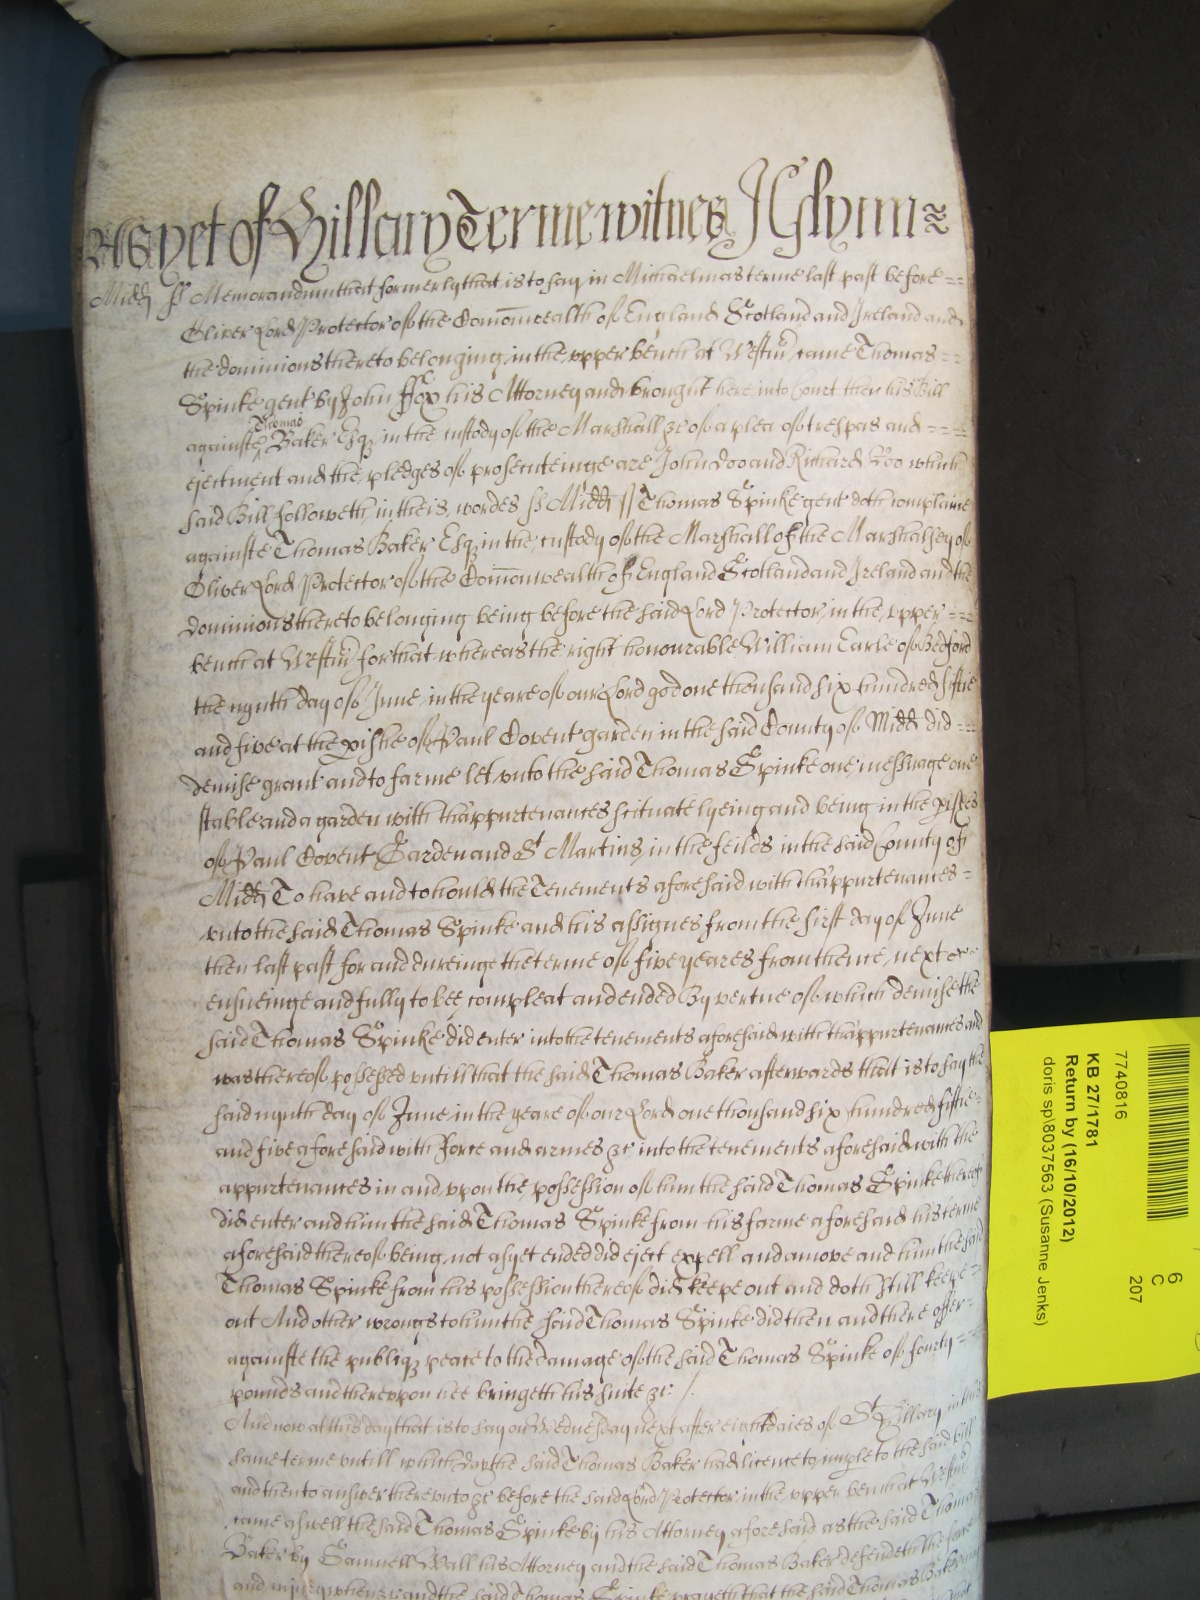 As yet of Hillary Terme witnes J Glynn
Midd ss Memorandum that formerly that is to say in Michaelmas terme last past before
Oliver Lord Protector of the Com̄onwealth of England Scotland and Ireland and
the dominions thereto belonging in the upper bench at Westm̄ came Thomas
Spinke gent by John ffox his Attorney and brought here into Court then his Bill
Thomas
against Baker Esq in the custody of the Marshall &c of a plea of trespas and
ejectment and the pledges of prosecuteinge are John Doo and Richard Roo which
said Bill followeth in theis wordes ss Midd ss Thomas Spinke gent doth complaine
againste Thomas Baker Esq in the custody of the Marshall of the Marshalsey of
Oliver Lord Protector of the Com̄onwealth of England Scotland and Ireland and the
Dominions thereto belonging being before the said Lord Protector in the upper
bench at Westm̄ for that whereas the right honourable William Earle of Bedford
the nynth day of June in the yeare of our Lord god one thousand six hundred fiftie
and five at the pishe of Paul Covent garden in the said County of Midd did
demise grant and to farme let unto the said Thomas Spinke one messuage one
stable and a garden with thappurtenances scituate lyeing and being in the pishes
of Paul Covent Garden and St Martins in the feilds in the said County of
Midd To have and to hould the Tenements aforesaid with thappurtenances
unto the said Thomas Spinke and his assignes from the first day of June
then last past for and dureinge the terme of five yeares from thence next
ensueinge and fully to bee compleat and ended By vertue of which demise the
said Thomas Spinke did enter into the tenements aforesaid with thappurtenances and
was thereof possessed untill that the said Thomas Baker afterwards that is to say the
said nynth day of June in the yeare of our Lord one thousand six hundred fiftie
and five aforesaid with Force and armes &c into the tenements aforesaid with the
appurtenances in and upon the possession of him the said Thomas Spinke thereof
did enter and him the said Thomas Spinke from his farme aforesaid his terme
aforesaid thereof being not as yet ended did eject expell and amove and him the said
Thomas Spinke from his possession thereof did keepe out and doth still keepe
out And other wrongs to him the said Thomas Spinke did then and there offer
againste the publiq peace to the damage of the said Thomas Spinke of fourty
pounds and thereupon hee bringeth his suite &c
And now at this day that is to say on Wednesday next after eight daies of St Hillary in this
same terme untill which day the said Thomas Baker had licence to imple to the said bill
and then to answer thereunto &c before the said Lord Protector in the upper bench at Westm̄
came aswell the said Thomas Spinke by his Attorney aforesaid as the said Thomas
Baker by Samuell Wall his Attorney and the said Thomas Baker defendeth the force
and injury when &c and the said Thomas Spinke prayeth that the said Thomas Baker
7740816
KB 27/1781
Return by (16/10/2012)
doris sp\8037563 (Susanne Jenks)
6
C
207